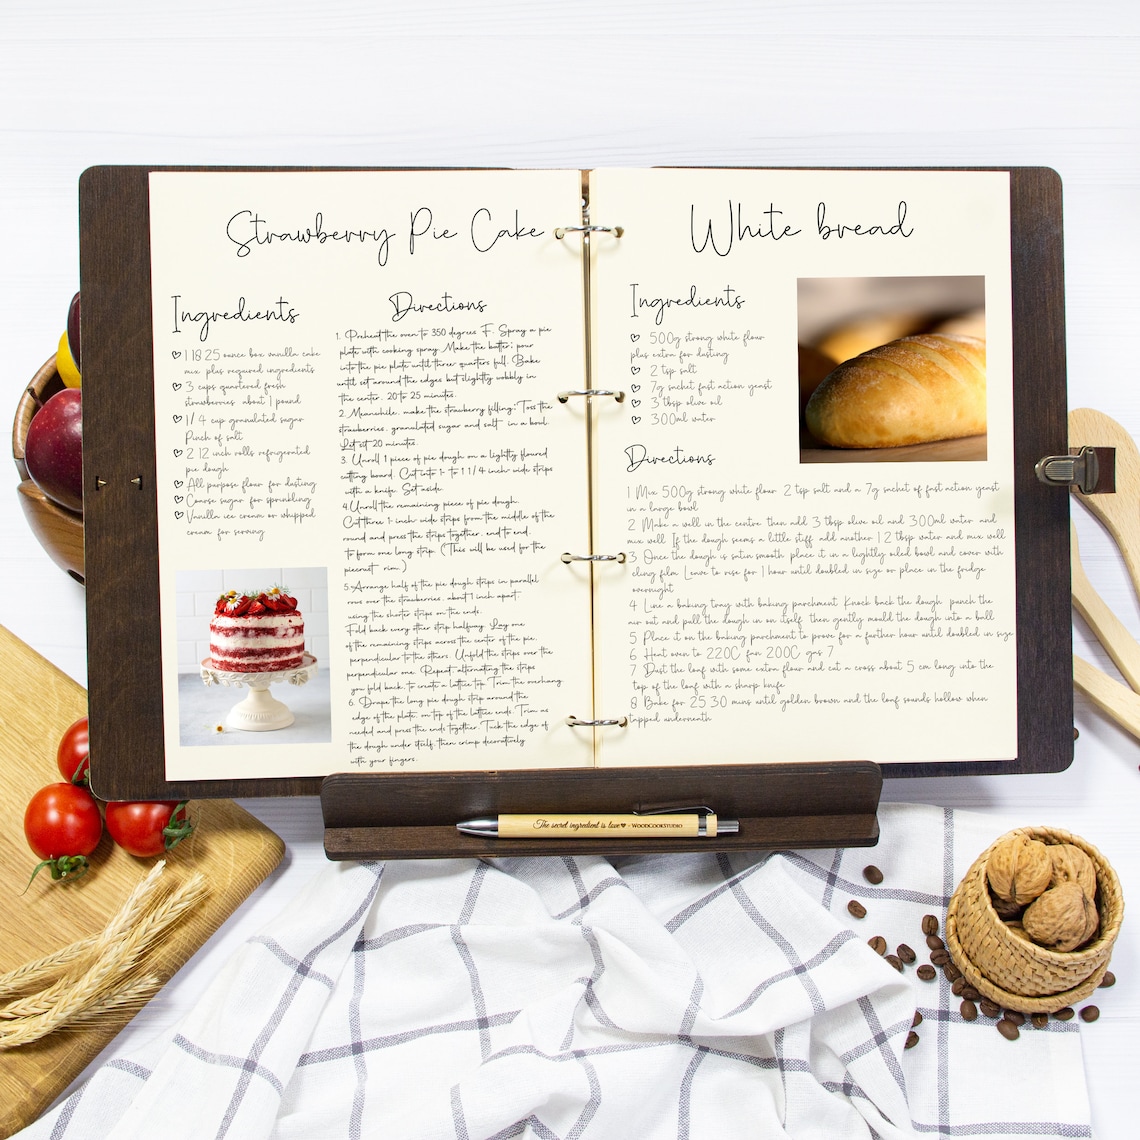 Strawberry Pie Cake
Ingredients
1 18.25 ounce box vanilla cake
mix plus required ingredients
3 cups quartered fresh
strawberries about 1 pound
1/4 cup granulated sugar
Pinch of salt
2 12 inch rolls refrigerated
pie dough
All purpose flour for dusting
Coarse sugar for sprinkling
Vanilla ice cream or whipped
cream for serving
Directions
1. Preheat the oven to 350 degrees F. Spray a pie
plate with cooking spray. Make the batter; pour
into the pie plate until three quarters full. Bake
until set around the edges but slightly wobbly in
the center, 20 to 25 minutes.
2. Meanwhile, make the strawberry filling: Toss the
strawberries, granulated sugar and salt in a bowl.
Let sit 20 minutes.
3. Unroll 1 piece of pie dough on a lightly floured
cutting board. Cut into 1- to 1 1/4 inch wide strips
with a knife. Set aside.
4. Unroll the remaining piece of pie dough.
Cut three 1-inch-wide strips from the middle of the
round and press the strips together, end to end,
to form one long strip. (This will be used for the
piecrust rim.)
5. Arrange half of the pie dough strips in parallel
rows over the strawberries, about 1 inch apart,
using the shorter strips on the ends.
Fold back every other strip halfway. Lay one
of the remaining strips across the center of the pie,
perpendicular to the others. Unfold the strips over the
perpendicular one. Repeat, alternating the strips
you fold back, to create a lattice top. Trim the overhang.
6. Drape the long pie dough strip around the
edge of the plate, on top of the lattice ends. Trim as
needed and press the ends together. Tuck the edge of
the dough under itself, then crimp decoratively
with your fingers.
White bread
Ingredients
500g strong white flour
plus extra for dusting
2 tsp salt
7g sachet fast action yeast
3 tbsp olive oil
300ml water
Directions
1 Mix 500g strong white flour 2 tsp salt and a 7g sachet of fast action yeast
in a large bowl
2 Make a well in the centre then add 3 tbsp olive oil and 300ml water and
mix well If the dough seems a little stiff add another 1 2 tbsp water and mix well
3 Once the dough is satin smooth place it in a lightly oiled bowl and cover with
cling film Leave to rise for 1 hour until doubled in size or place in the fridge
overnight
4 Line a baking tray with baking parchment Knock back the dough punch the
air out and pull the dough in on itself then gently mould the dough into a ball
5 Place it on the baking parchment to prove for a further hour until doubled in size
6 Heat oven to 220C fan 200C gas 7
7 Dust the loaf with some extra flour and cut a cross about 5 cm long into the
top of the loaf with a sharp knife
8 Bake for 25 30 mins until golden brown and the loaf sounds hollow when
tapped underneath
The secret ingredient is love ♥ - WOODCOOKSTUDIO